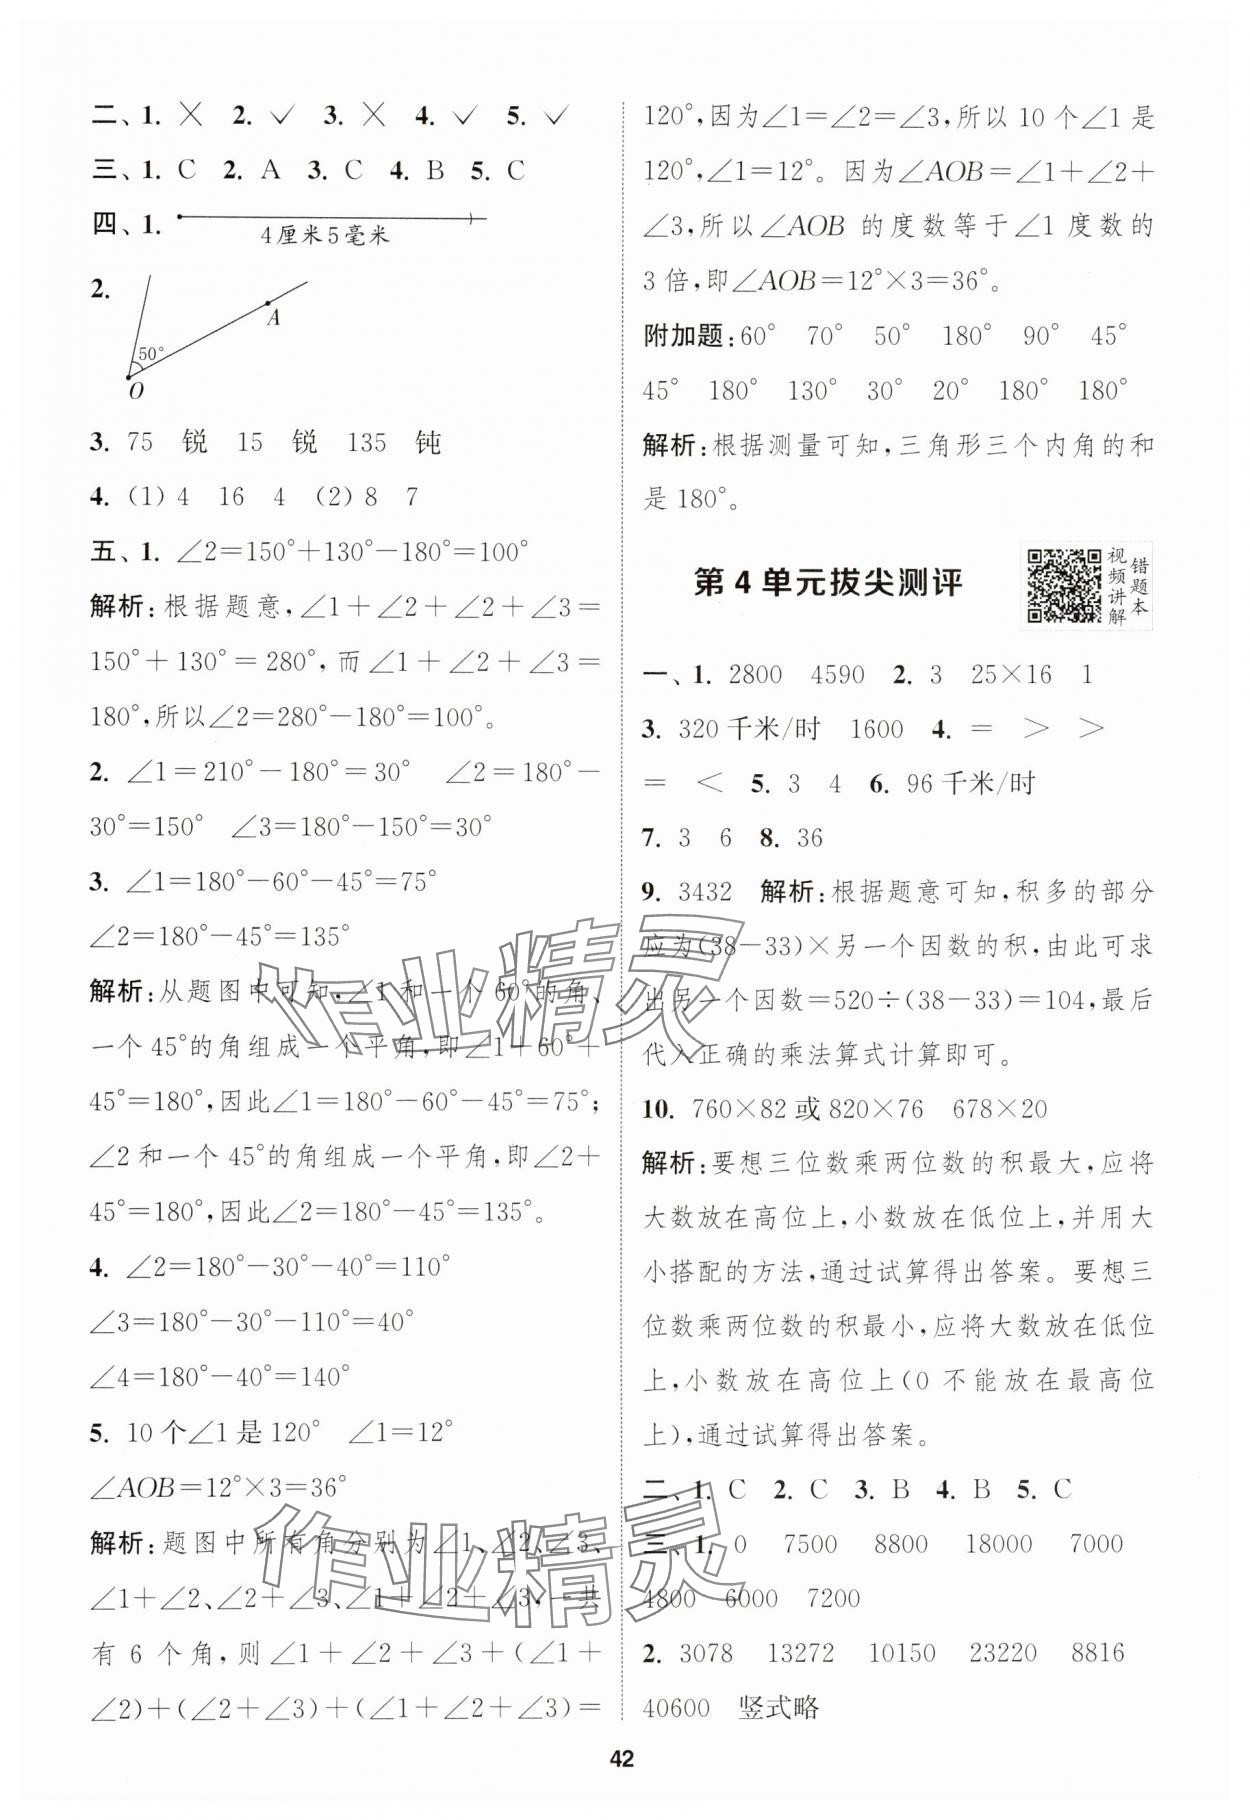 二、1. ✕ 2. ✓ 3. ✕ 4. ✓ 5. ✓
三、1. C 2. A 3. C 4. B 5. C
四、1.
4厘米5毫米
2.
50°
A
O
3. 75 锐 15 锐 135 钝
4. (1) 4 16 4 (2) 8 7
五、1. ∠2=150°+130°-180°=100°
解析:根据题意,∠1+∠2+∠2+∠3=
150°+130°=280°,而∠1+∠2+∠3=
180°,所以∠2=280°-180°=100°。
2. ∠1=210°-180°=30° ∠2=180°-
30°=150° ∠3=180°-150°=30°
3. ∠1=180°-60°-45°=75°
∠2=180°-45°=135°
解析:从题图中可知,∠1和一个60°的角、
一个45°的角组成一个平角,即∠1+60°+
45°=180°,因此∠1=180°-60°-45°=75°;
∠2和一个45°的角组成一个平角,即∠2+
45°=180°,因此∠2=180°-45°=135°。
4. ∠2=180°-30°-40°=110°
∠3=180°-30°-110°=40°
∠4=180°-40°=140°
5. 10个∠1是120° ∠1=12°
∠AOB=12°×3=36°
解析:题图中所有角分别为∠1、∠2、∠3、
∠1+∠2、∠2+∠3、∠1+∠2+∠3,一共
有6个角,则∠1+∠2+∠3+(∠1+
∠2)+(∠2+∠3)+(∠1+∠2+∠3)=
120°,因为∠1=∠2=∠3,所以10个∠1是
120°,∠1=12°。因为∠AOB=∠1+∠2+
∠3,所以∠AOB的度数等于∠1度数的
3倍,即∠AOB=12°×3=36°。
附加题:60° 70° 50° 180° 90° 45°
45° 180° 130° 30° 20° 180° 180°
解析:根据测量可知,三角形三个内角的和
是180°。
第4单元拔尖测评
视频讲解
错题本
一、1. 2800 4590 2. 3 25×16 1
3. 320千米/时 1600 4. = > >
= < 5. 3 4 6. 96千米/时
7. 3 6 8. 36
9. 3432 解析:根据题意可知,积多的部分
应为(38-33)×另一个因数的积,由此可求
出另一个因数=520÷(38-33)=104,最后
代入正确的乘法算式计算即可。
10. 760×82或820×76 678×20
解析:要想三位数乘两位数的积最大,应将
大数放在高位上,小数放在低位上,并用大
小搭配的方法,通过试算得出答案。要想三
位数乘两位数的积最小,应将大数放在低位
上,小数放在高位上(0不能放在最高位
上),通过试算得出答案。
二、1. C 2. C 3. B 4. B 5. C
三、1. 0 7500 8800 18000 7000
4800 6000 7200
2. 3078 13272 10150 23220 8816
40600 竖式略
42
作业精灵
作业精灵